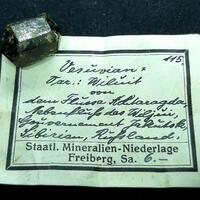 115.
Vesuvian
Var.: Wiluit
von
dem Flusse Achtaragda,
Nebenfluss des Wiljui,
Gouvernement Jakutsk,
Sibirien, Rußland.
Staatl. Mineralien-Niederlage
Freiberg, Sa. 6.—